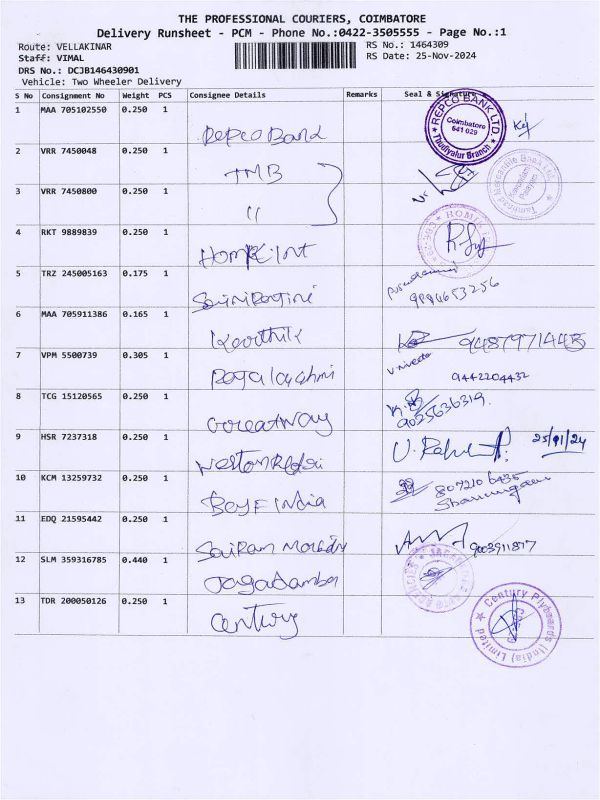 THE PROFESSIONAL COURIERS, COIMBATORE
Delivery Runsheet - PCM - Phone No.:0422-3505555 - Page No.:1
Route: VELLAKINAR RS No.: 1464309
Staff: VIMAL RS Date: 25-Nov-2024
DRS No.: DCJB146430901
Vehicle: Two Wheeler Delivery
S No Consignment No Weight PCS Consignee Details Remarks Seal & Signature
1 MAA 705102550 0.250 1 Repco Bank
REPCO BANK LTD. Coimbatore 641 029 Thudiyalur Branch
2 VRR 7450048 0.250 1 TMB
Tamilnad Mercantile Bank Ltd.
3 VRR 7450800 0.250 1 "
4 RKT 9889839 0.250 1
5 TRZ 245005163 0.175 1
9994653256
6 MAA 705911386 0.165 1 Karthik
9487971445
7 VPM 5500739 0.305 1 Rajalakshmi
9442204432
8 TCG 15120565 0.250 1 Greatway
9025636319
9 HSR 7237318 0.250 1
10 KCM 13259732 0.250 1 B of India
8072106435
Shanmugam
11 EDQ 21595442 0.250 1 Sairam
9003911877
12 SLM 359316785 0.440 1 Jagadamba
13 TDR 200050126 0.250 1 Century
Century Plyboards (India) Limited